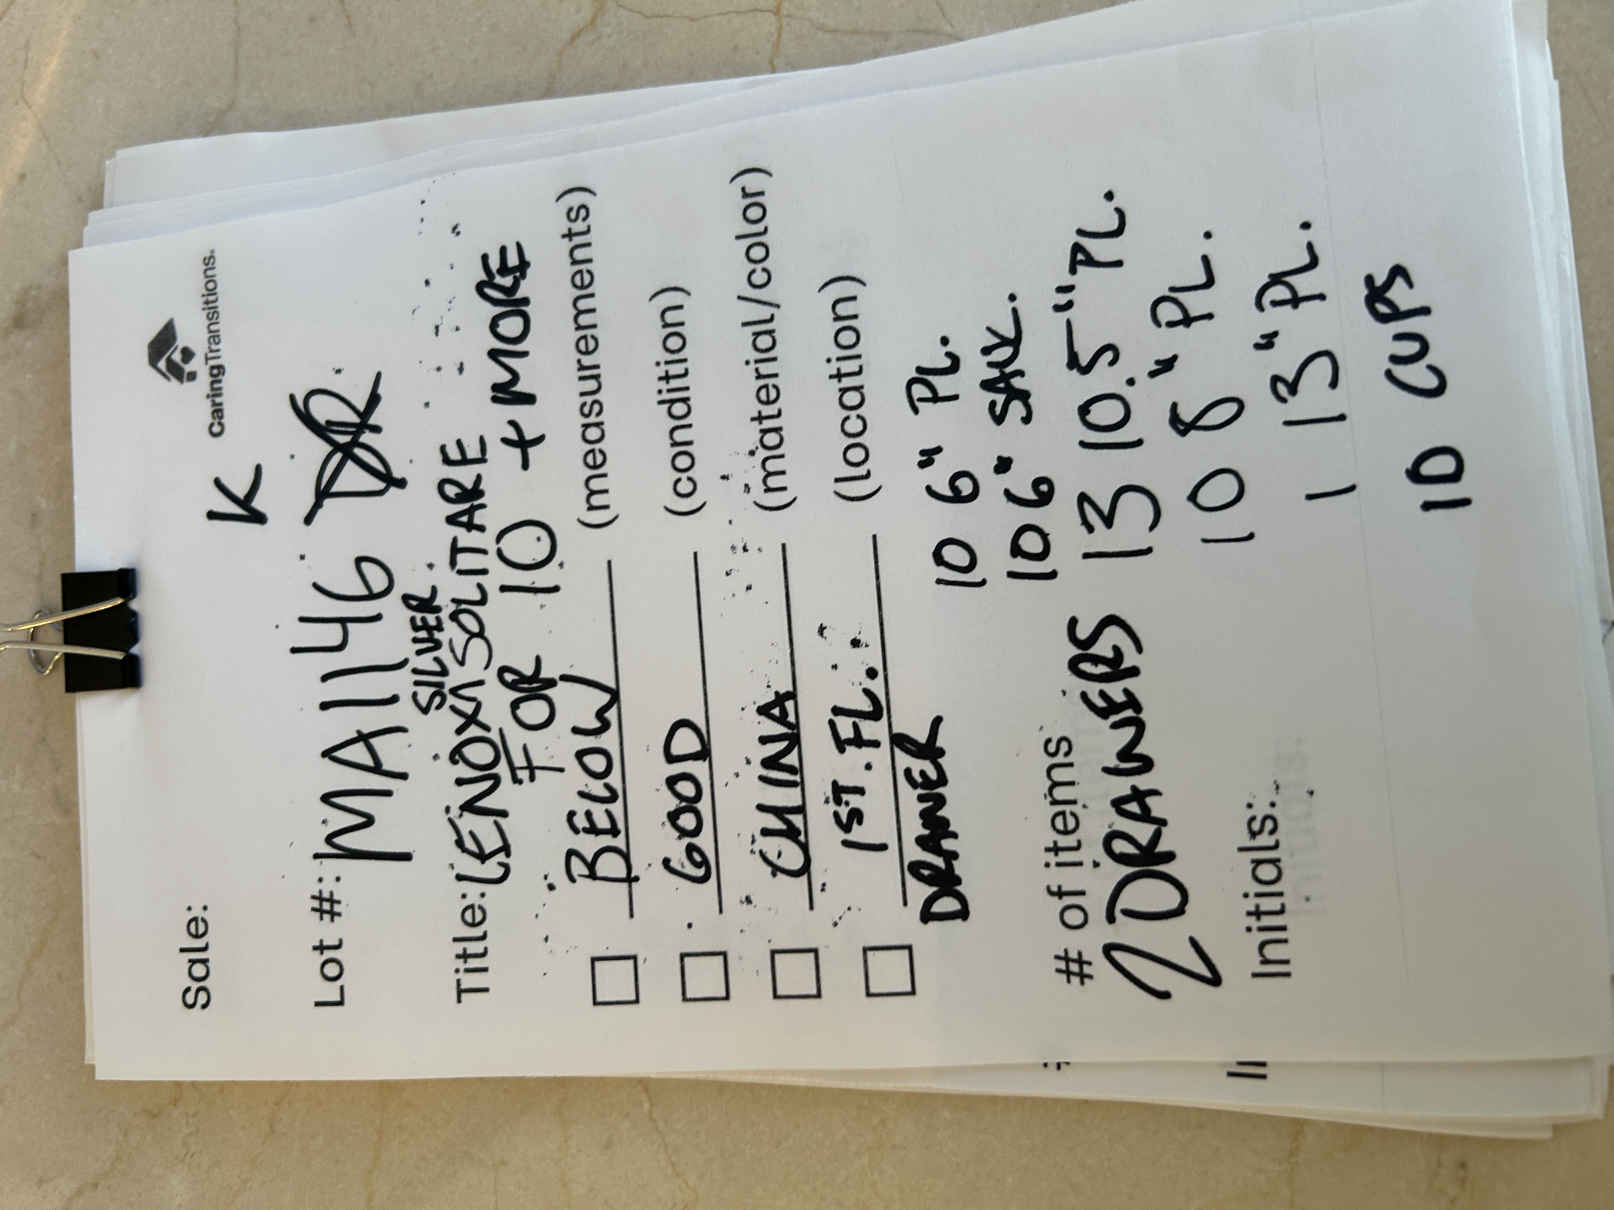 K
CaringTransitions.
Sale:
Lot #: MA1146
SILVER
Title: LENOX SOLITARE
FOR 10 + MORE
BELOW (measurements)
GOOD (condition)
CHINA (material/color)
1ST. FL. (location)
DRAWER
10 6" PL.
10 6" SAUC.
# of items
2 DRAWERS 13 10.5" PL.
10 8" PL.
Initials:
1 13" PL.
10 CUPS